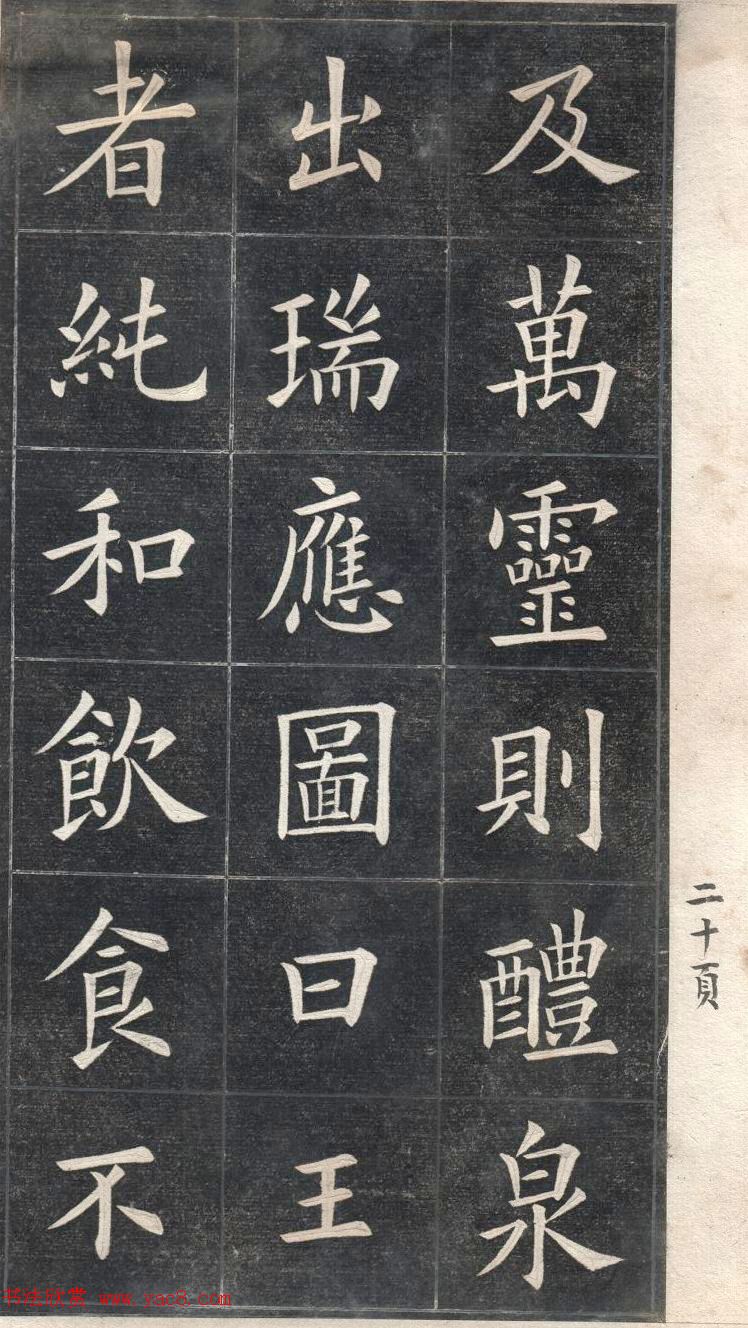 及萬靈則醴泉
出瑞應圖曰王
者純和飲食不
二十頁
书法欣赏 www.yac8.com